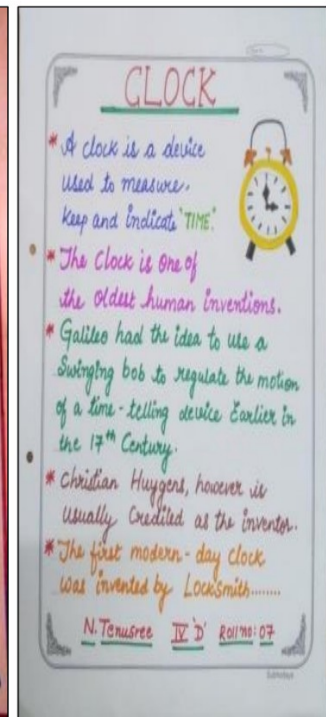 CLOCK
* A clock is a device
used to measure.
Keep and indicate "TIME".
* The Clock is one of
the oldest human inventions.
* Galileo had the idea to use a
Swinging bob to regulate the motion
of a time-telling device Earlier in
the 17th Century.
* Christian Huygens, however is
usually Credited as the inventor.
* The first modern-day clock
was invented by Locksmith........
N. Tenusree IV 'D' Roll no: 07